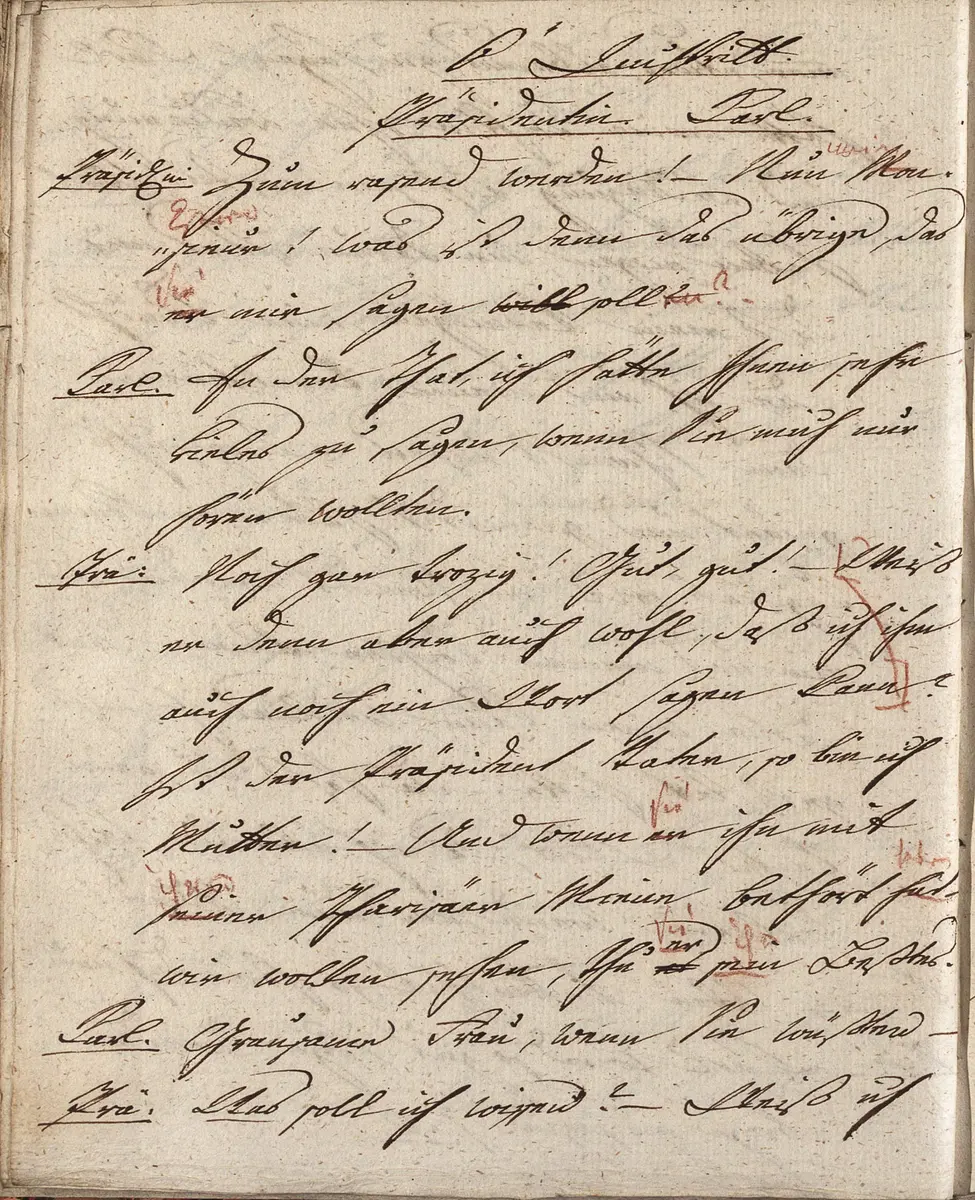 6t Auftritt.
Präsidentin. Carl.
Präsidtin Zum rasend werden! – Nun mein Mon-
Herr
„sieur! was ist denn das übrige, das
Sie
er mir sagen will soll en? –
Carl. In der That, ich hätte Ihnen sehr
vieles zu sagen, wenn Sie mich nur
hören wollten.
Prä: Noch gar trozig! Gut, gut! – Weiß
er denn aber auch wohl, daß ich ihm
auch noch ein Wort sagen kann?
Ist der Präsident Vater, so bin ich
Sie
Mutter! – Und wenn er ihn mit
ihrer haben
seiner Pharisäer Miene bethört hat –
Sie er ihr
wir wollen sehen, thu er sein Bestes.
Carl. Grausame Frau, wenn Sie wüßten –
Prä. Was soll ich wissen? – Weiß ich